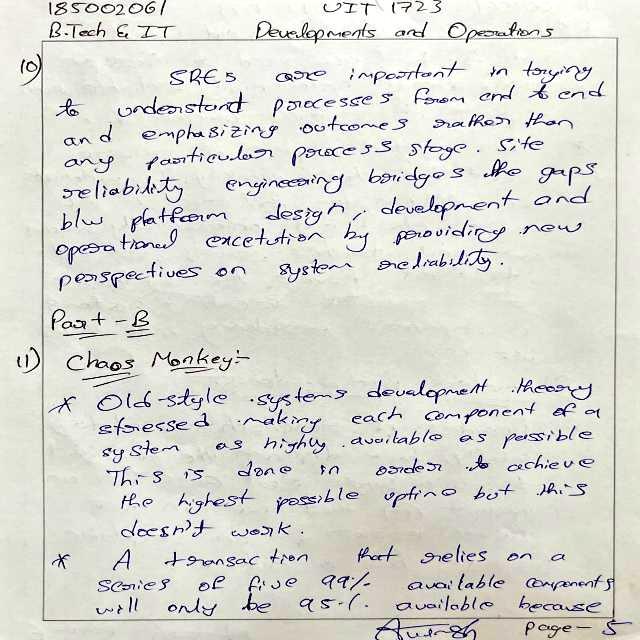 185002061 UIT 1723
B.Tech & IT Developments and Operations
10) SREs are important in trying
to understand processes from end to end
and emphasizing outcomes rather than
any particular process stage. Site
reliability engineering bridges the gaps
b/w platform design, development and
operational excetution by providing new
perspectives on system reliability.
Part - B
11) Chaos Monkey:-
* Old-style systems development theory
stressed making each component of a
system as highly available as possible
This is done in order to achieve
the highest possible uptine but this
doesn't work.
* A transaction that relies on a
series of five 99% available components
will only be 95%. available because
page - 5